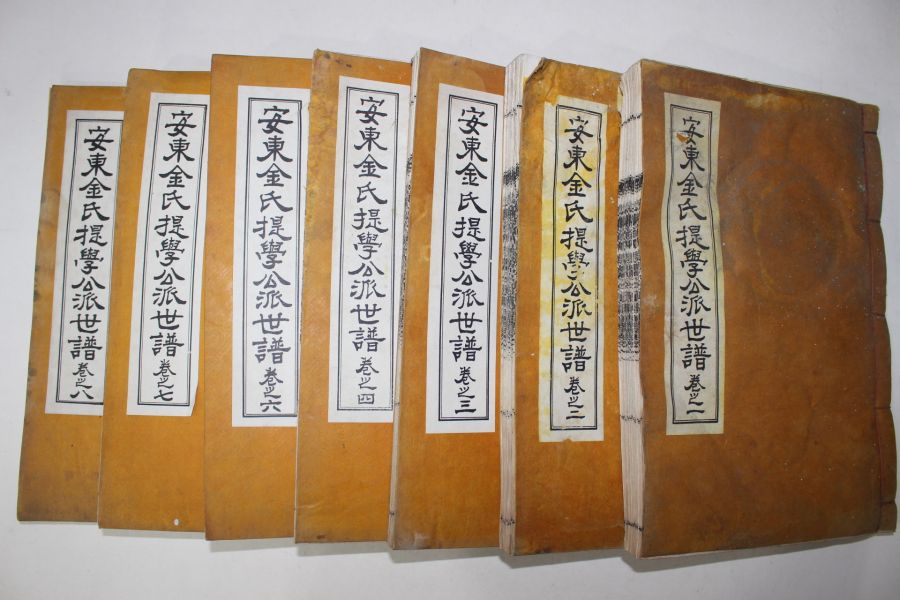 安東金氏提學公派世譜 卷之一
安東金氏提學公派世譜 卷之二
安東金氏提學公派世譜 卷之三
安東金氏提學公派世譜 卷之四
安東金氏提學公派世譜 卷之六
安東金氏提學公派世譜 卷之七
安東金氏提學公派世譜 卷之八